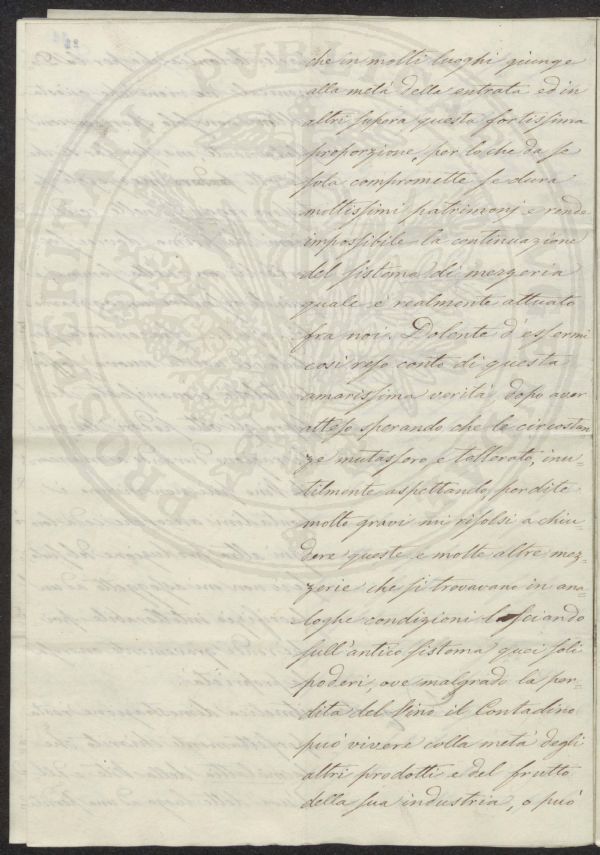 che in molti luoghi giunge
alla metà della entrata ed in
altri supera questa fortissima
proporzione, per lo che da se
sola compromette se dura
moltissimi patrimonj e rende
impossibile la continuazione
del sistema di mezzeria
quale è realmente attuato
fra noi. Dolente d'essermi
così reso conto di questa
amarissima verità dopo aver
atteso sperando che le circostan
ze mutassero e tollerato, inu=
tilmente aspettando, perdite
molto gravi mi risolsi a chiu=
dere queste e molte altre mez=
zerie che si trovavano in ana=
loghe condizioni lasciando
sull'antico sistema quei soli
poderi, ove malgrado la per=
dita del Vino il Contadino
può vivere colla metà degli
altri prodotti e del frutto
della sua industria, o può
PROSPERITATI PUBLICAE